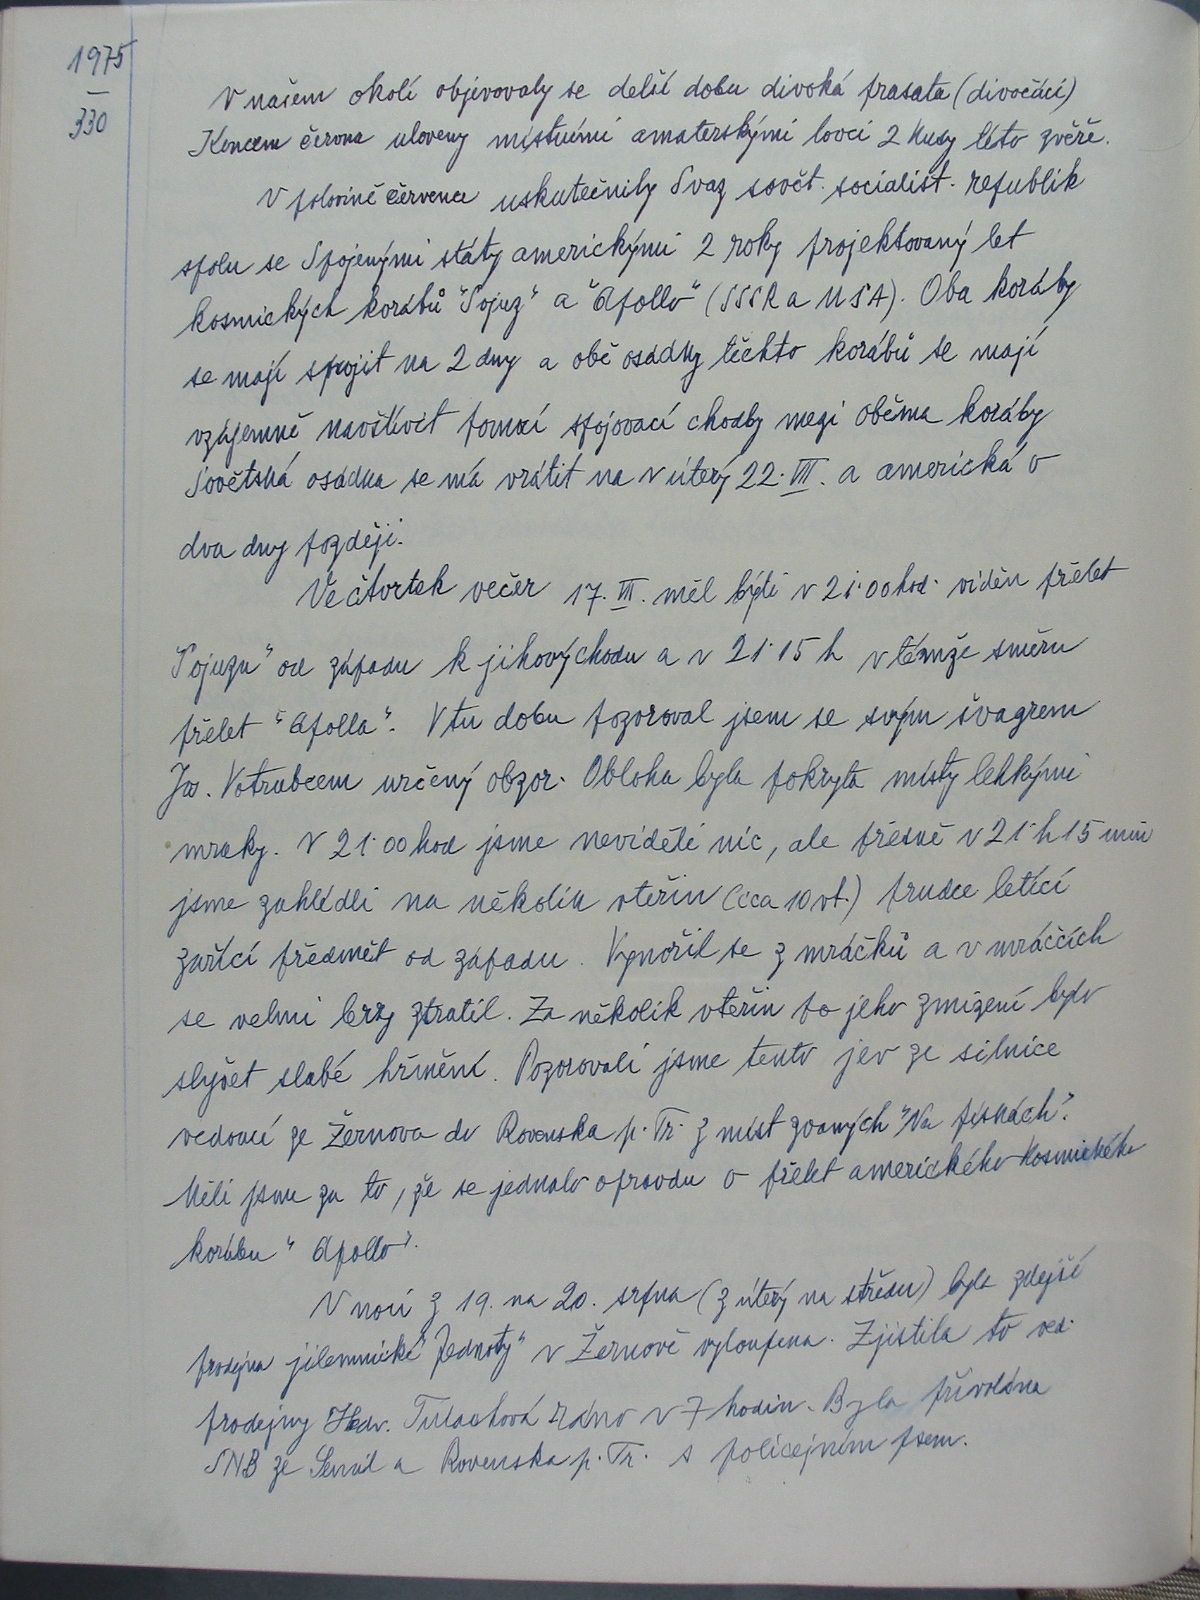 1975
330
V našem okolí objevovaly se delší dobu divoká prasata (divočáci)
Koncem června uloveny místními amaterskými lovci 2 kusy této zvěře.
V polovině července uskutečnily Svaz sovět. socialist. republik
spolu se Spojenými státy americkými 2 roky projektovaný let
kosmických korábů "Sojuz" a "Apollo" (SSSR a USA). Oba koráby
se mají spojit na 2 dny a obě osádky těchto korábů se mají
vzájemně navštívit pomocí spojovací chodby mezi oběma koráby
Sovětská osádka se má vrátit na v úterý 22. VII. a americká o
dva dny později.
Ve čtvrtek večer 17. VII. měl býti v 21.00 hod. viděn přelet
"Sojuzu" od západu k jihovýchodu a v 21.15 h v témže směru
přelet "Apolla". V tu dobu pozoroval jsem se svým švagrem
Jos. Votrubcem určený obzor. Obloha byla pokryta místy lehkými
mraky. V 21.00 hod jsme neviděli nic, ale přesně v 21 h 15 min
jsme zahlédli na několik vteřin (cca 10 vt.) prudce letící
zářící předmět od západu. Vynořil se z mráčků a v mráčcích
se velmi brzy ztratil. Za několik vteřin po jeho zmizení bylo
slyšet slabé hřmění. Pozorovali jsme tento jev ze silnice
vedoucí ze Žernova do Rovenska p. Tr. z míst zvaných "Na pískách".
Měli jsme za to, že se jednalo opravdu o přelet amerického kosmického
korábu "Apollo".
V noci z 19. na 20. srpna (z úterý na středu) byla zdejší
prodejna jilemnické "Jednoty" v Žernově vyloupena. Zjistila to ved.
prodejny Hedv. Tulachová ráno v 7 hodin. Byla přivolána
SNB ze Semil a Rovenska p. Tr. s policejním psem.